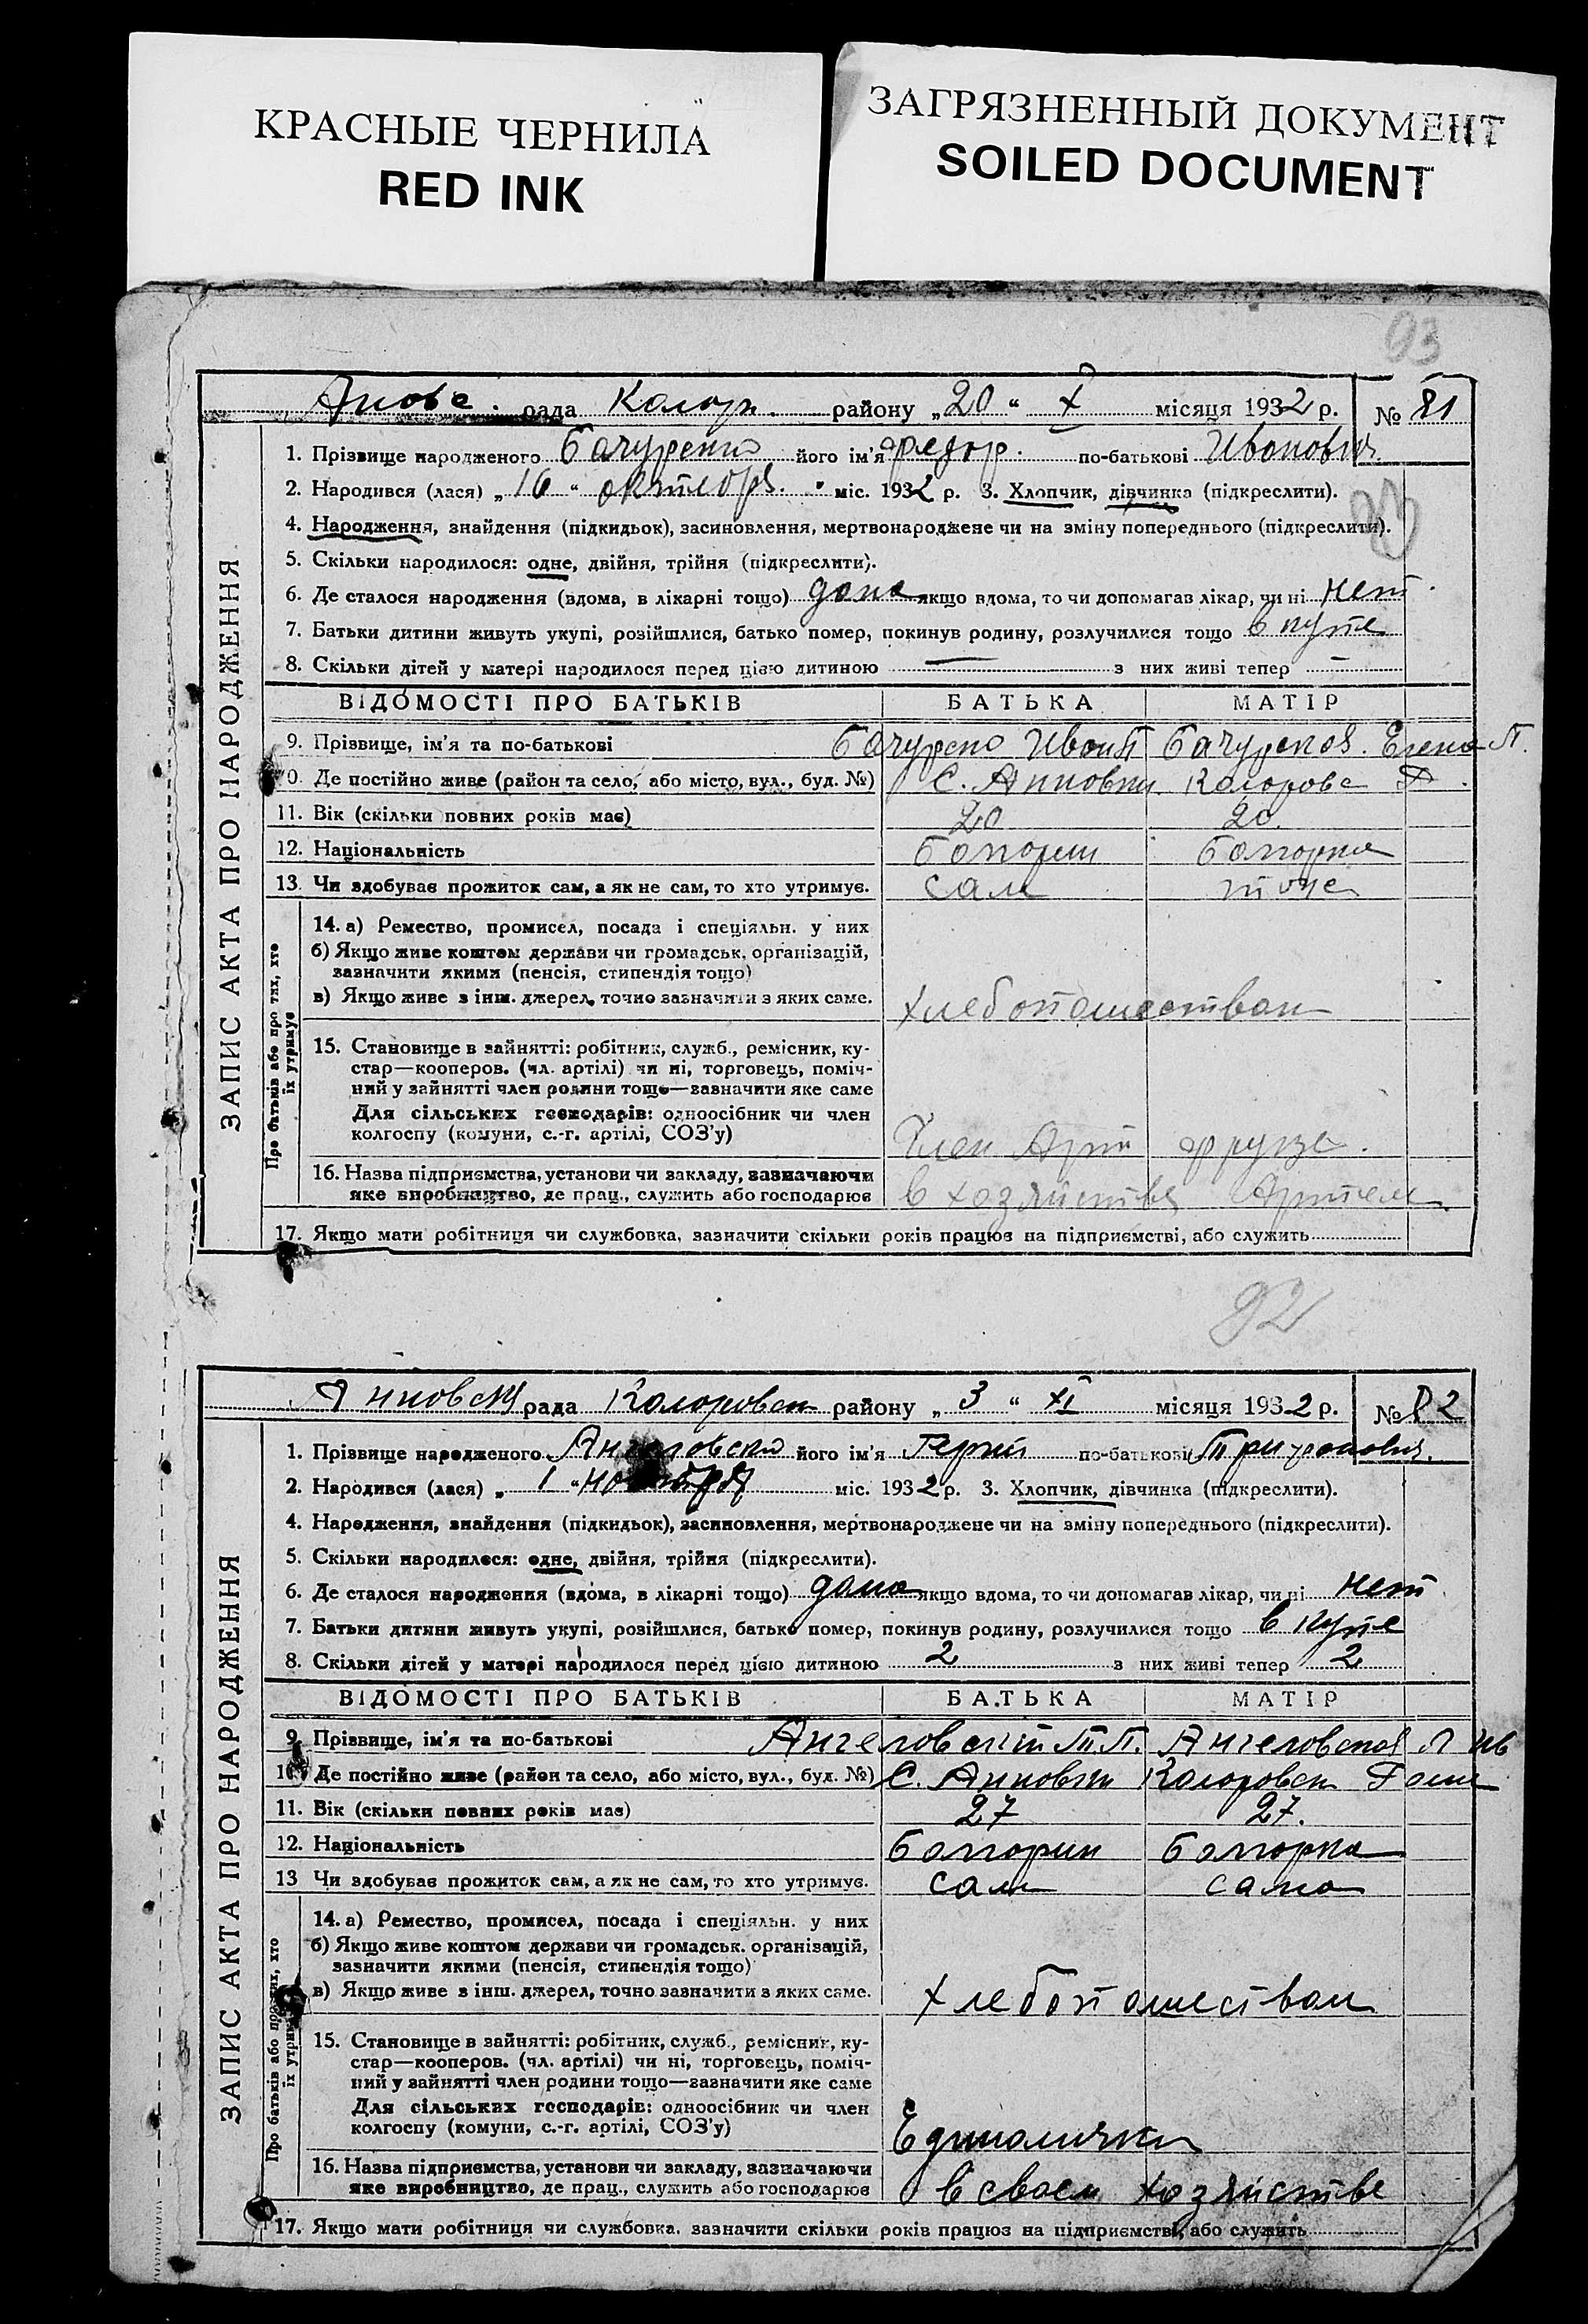 КРАСНЫЕ ЧЕРНИЛА
RED INK
ЗАГРЯЗНЕННЫЙ ДОКУМЕНТ
SOILED DOCUMENT
93
рада района „20“ X місяця 1932 р. № 81
ЗАПИС АКТА ПРО НАРОДЖЕННЯ
1. Прізвище народженого його ім'я Федор. по-батькові Иванович
2. Народився (лася) „16“ октября міс. 1932 р. 3. Хлопчик, дівчинка (підкреслити).
4. Народження, знайдення (підкидьок), засиновлення, мертвонароджене чи на зміну попереднього (підкреслити).
5. Скільки народилося: одне, двійня, трійня (підкреслити).
6. Де сталося народження (вдома, в лікарні тощо) дома якщо вдома, то чи допомагав лікар, чи ні нет
7. Батьки дитини живуть укупі, розійшлися, батько помер, покинув родину, розлучилися тощо в купе
8. Скільки дітей у матері народилося перед цією дитиною — з них живі тепер —
ВІДОМОСТІ ПРО БАТЬКІВ БАТЬКА МАТІР
9. Прізвище, ім'я та по-батькові Елена П.
10. Де постійно живе (район та село, або місто, вул., буд. №) С.
11. Вік (скільки повних років має) 20 20
12. Національність
13. Чи здобуває прожиток сам, а як не сам, то хто утримує. сам тоже
Про батьків або про тих, хто їх утримує
14. а) Ремество, промисел, посада і спеціяльн. у них
б) Якщо живе коштом держави чи громадськ. організацій,
зазначити якими (пенсія, стипендія тощо)
в) Якщо живе з інш. джерел, точно зазначити з яких саме. хлебопашеством
15. Становище в зайнятті: робітник, служб., ремісник, ку-
стар—кооперов. (чл. артілі) чи ні, торговець, поміч-
ний у зайнятті член родини тощо—зазначити яке саме
Для сільських господарів: одноосібник чи член
колгоспу (комуни, с.-г. артілі, СОЗ'у) Член Арт Фрунзе.
16. Назва підприємства, установи чи закладу, зазначаючи
яке виробництво, де прац., служить або господарює в хозяйстве Артели
17. Якщо мати робітниця чи службовка, зазначити скільки років працює на підприємстві, або служить
92
рада району „3“ XI місяця 1932 р. № 82
ЗАПИС АКТА ПРО НАРОДЖЕННЯ
1. Прізвище народженого його ім'я по-батькові Трифонович
2. Народився (лася) „1“ ноября міс. 1932 р. 3. Хлопчик, дівчинка (підкреслити).
4. Народження, знайдення (підкидьок), засиновлення, мертвонароджене чи на зміну попереднього (підкреслити).
5. Скільки народилося: одне, двійня, трійня (підкреслити).
6. Де сталося народження (вдома, в лікарні тощо) дома якщо вдома, то чи допомагав лікар, чи ні нет
7. Батьки дитини живуть укупі, розійшлися, батько помер, покинув родину, розлучилися тощо в купе
8. Скільки дітей у матері народилося перед цією дитиною 2 з них живі тепер 2
ВІДОМОСТІ ПРО БАТЬКІВ БАТЬКА МАТІР
9. Прізвище, ім'я та по-батькові Ангеловский Т.П. Ангеловская
10. Де постійно живе (район та село, або місто, вул., буд. №) С.
11. Вік (скільки повних років має) 27 27.
12. Національність
13 Чи здобуває прожиток сам, а як не сам, то хто утримує. сам сама
Про батьків або про тих, хто їх утримує
14. а) Ремество, промисел, посада і спеціяльн. у них
б) Якщо живе коштом держави чи громадськ. організацій,
зазначити якими (пенсія, стипендія тощо)
в) Якщо живе з інш. джерел, точно зазначити з яких саме. хлебопашеством
15. Становище в зайнятті: робітник, служб., ремісник, ку-
стар—кооперов. (чл. артілі) чи ні, торговець, поміч-
ний у зайнятті член родини тощо—зазначити яке саме
Для сільських господарів: одноосібник чи член
колгоспу (комуни, с.-г. артілі, СОЗ'у)
16. Назва підприємства, установи чи закладу, зазначаючи
яке виробництво, де прац., служить або господарює в своем хозяйстве
17. Якщо мати робітниця чи службовка, зазначити скільки років працює на підприємстві, або служить